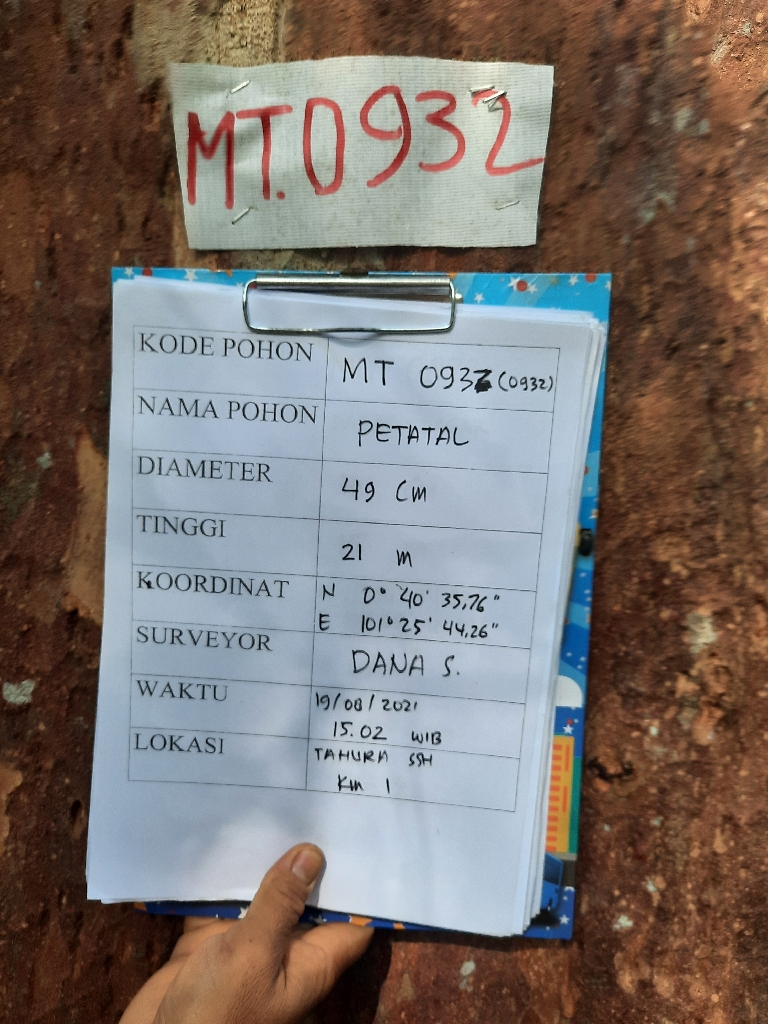 MT.0932
KODE POHON MT 0932 (0932)
NAMA POHON PETATAL
DIAMETER 49 Cm
TINGGI 21 m
KOORDINAT N 0° 40' 35,76"
E 101° 25' 44,26"
SURVEYOR DANA S.
WAKTU 19/08/2021
15.02 WIB
LOKASI TAHURA SSH
Km 1